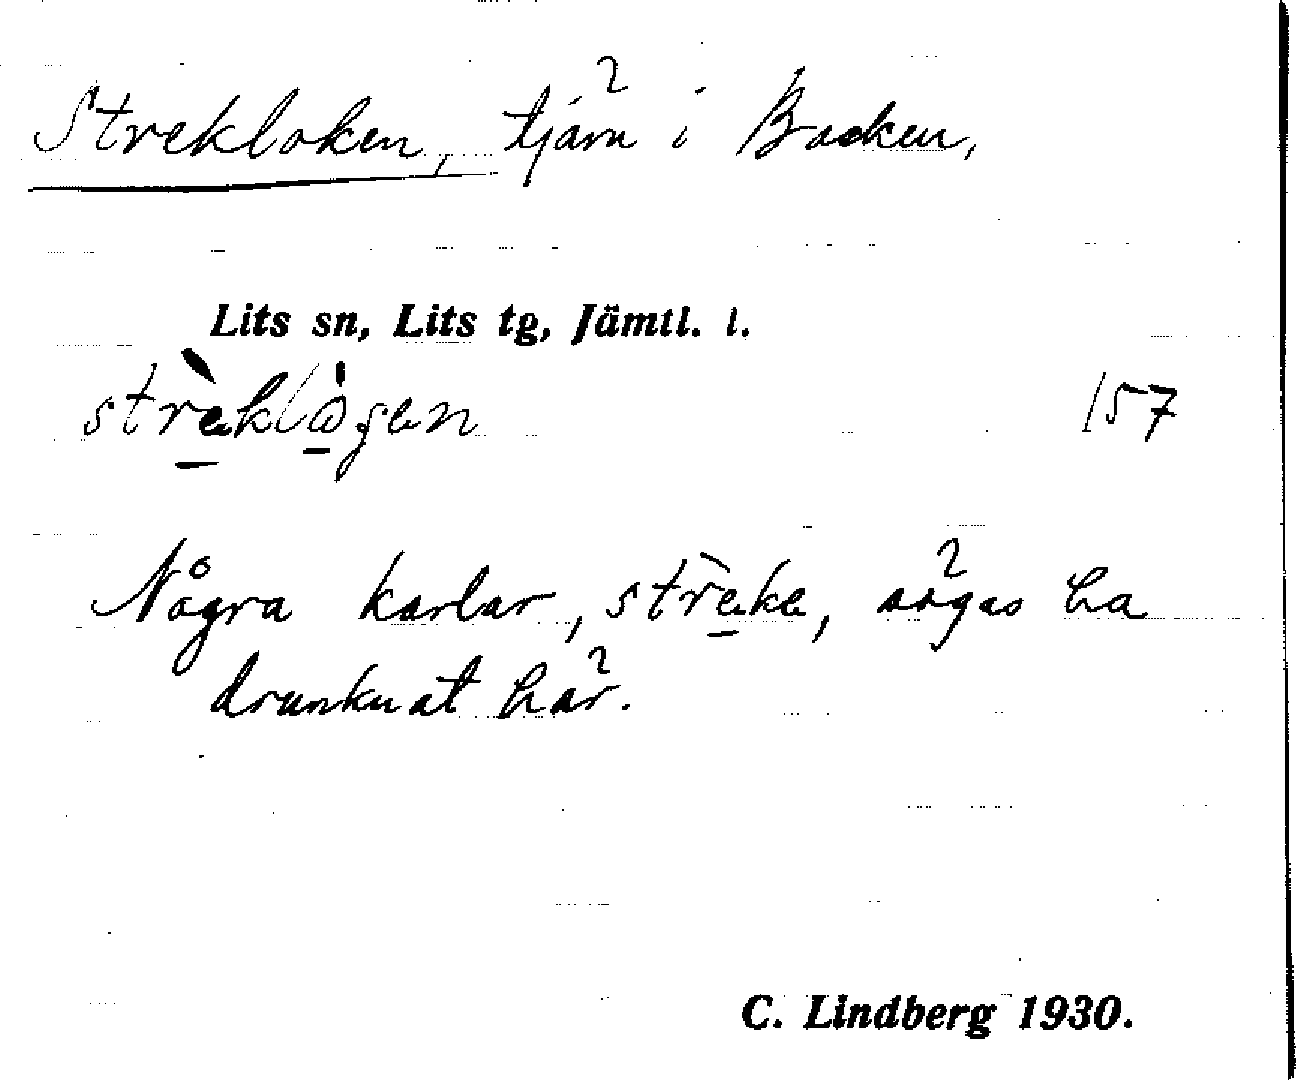 Strekloken, tjärn i Backen,
Lits sn, Lits tg, Jämtl. l.
157
Några karlar, streke, sägas ha
drunknat här.
C. Lindberg 1930.